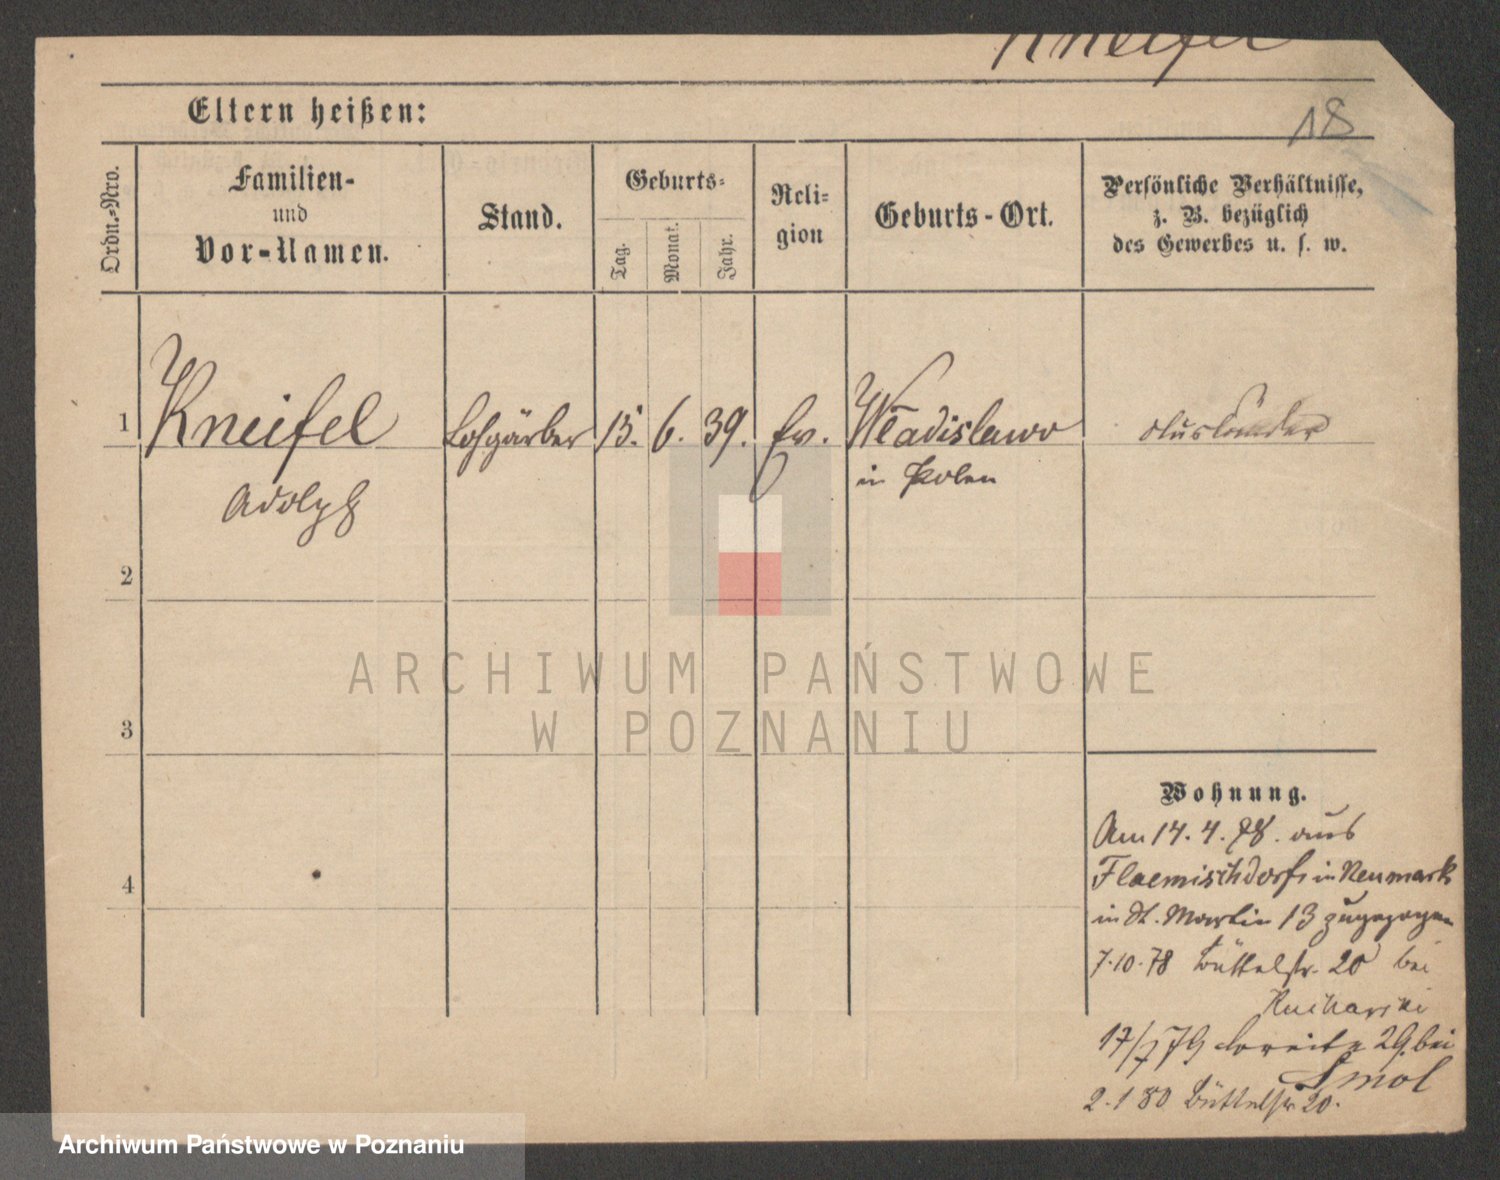 Kneifel
Eltern heißen:
18
Ordn.-Nro.
Familien-
und
Vor-Namen.
Stand.
Geburts-
Tag.
Monat.
Jahr.
Reli-
gion
Geburts-Ort.
Persönliche Verhältnisse,
z. B. bezüglich
des Gewerbes u. s. w.
1 Kneifel Lohgärber 15. 6. 39. Ev. Wladislawo Ausländer
Adolph in Polen
2
3
4
ARCHIWUM PAŃSTWOWE
W POZNANIU
Wohnung.
Am 14. 4. 78. aus
Flaemischdorf in Neumark
in St. Martin 13 zugezogen
7.10.78 Büttelstr. 20 bei
Kucharski
17/7 79 Breite 29. bei
Smol
2.1 80 Büttelstr 20.
Archiwum Państwowe w Poznaniu